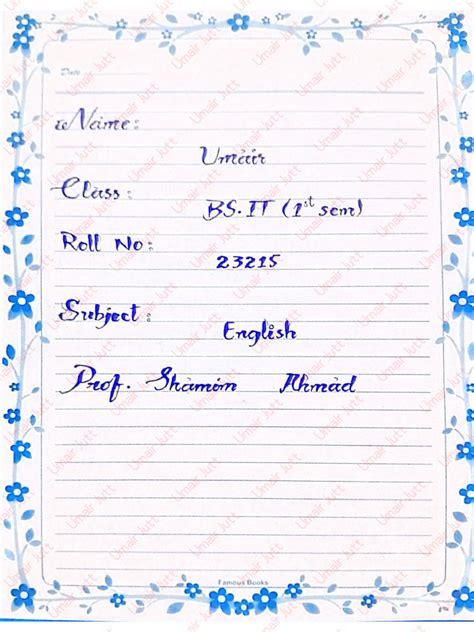 Date
Name:
Umair
Class:
BS.IT (1st sem)
Roll No:
23215
Subject:
English
Prof. Shamim Ahmad
Famous Books
Umair Jutt